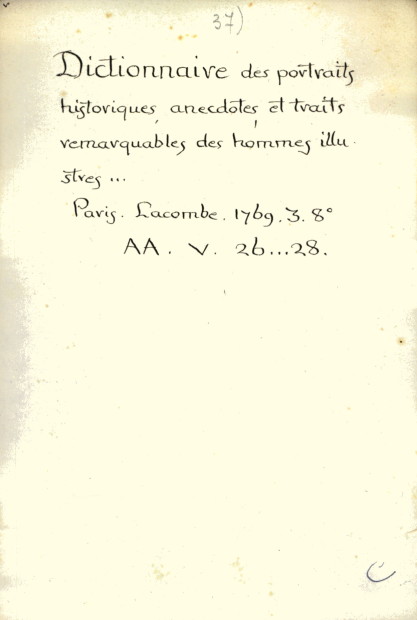 37)
Dictionnaire des portraits
historiques, anecdotes et traits
remarquables des hommes illu-
stres...
Paris. Lacombe. 1769. 3. 8°
AA. V. 26...28.
C